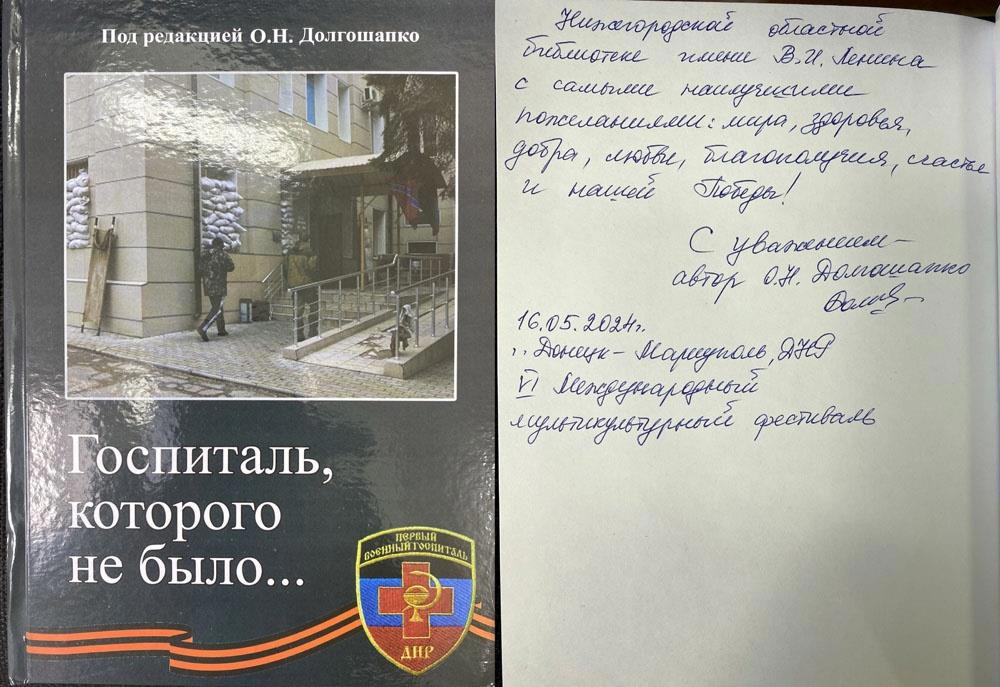 Под редакцией О.Н. Долгошапко
Госпиталь,
которого
не было...
ПЕРВЫЙ
ВОЕННЫЙ ГОСПИТАЛЬ
ДНР
Нижегородской областной
библиотеке имени В.И. Ленина
с самыми наилучшими
пожеланиями: мира, здоровья,
добра, любви, благополучия, счастье
и нашей Победы!
С уважением –
автор О.Н. Долгошапко
16.05.2024г.
г. Донецк – Мариуполь, ДНР
VI Международный
мультикультурный фестиваль